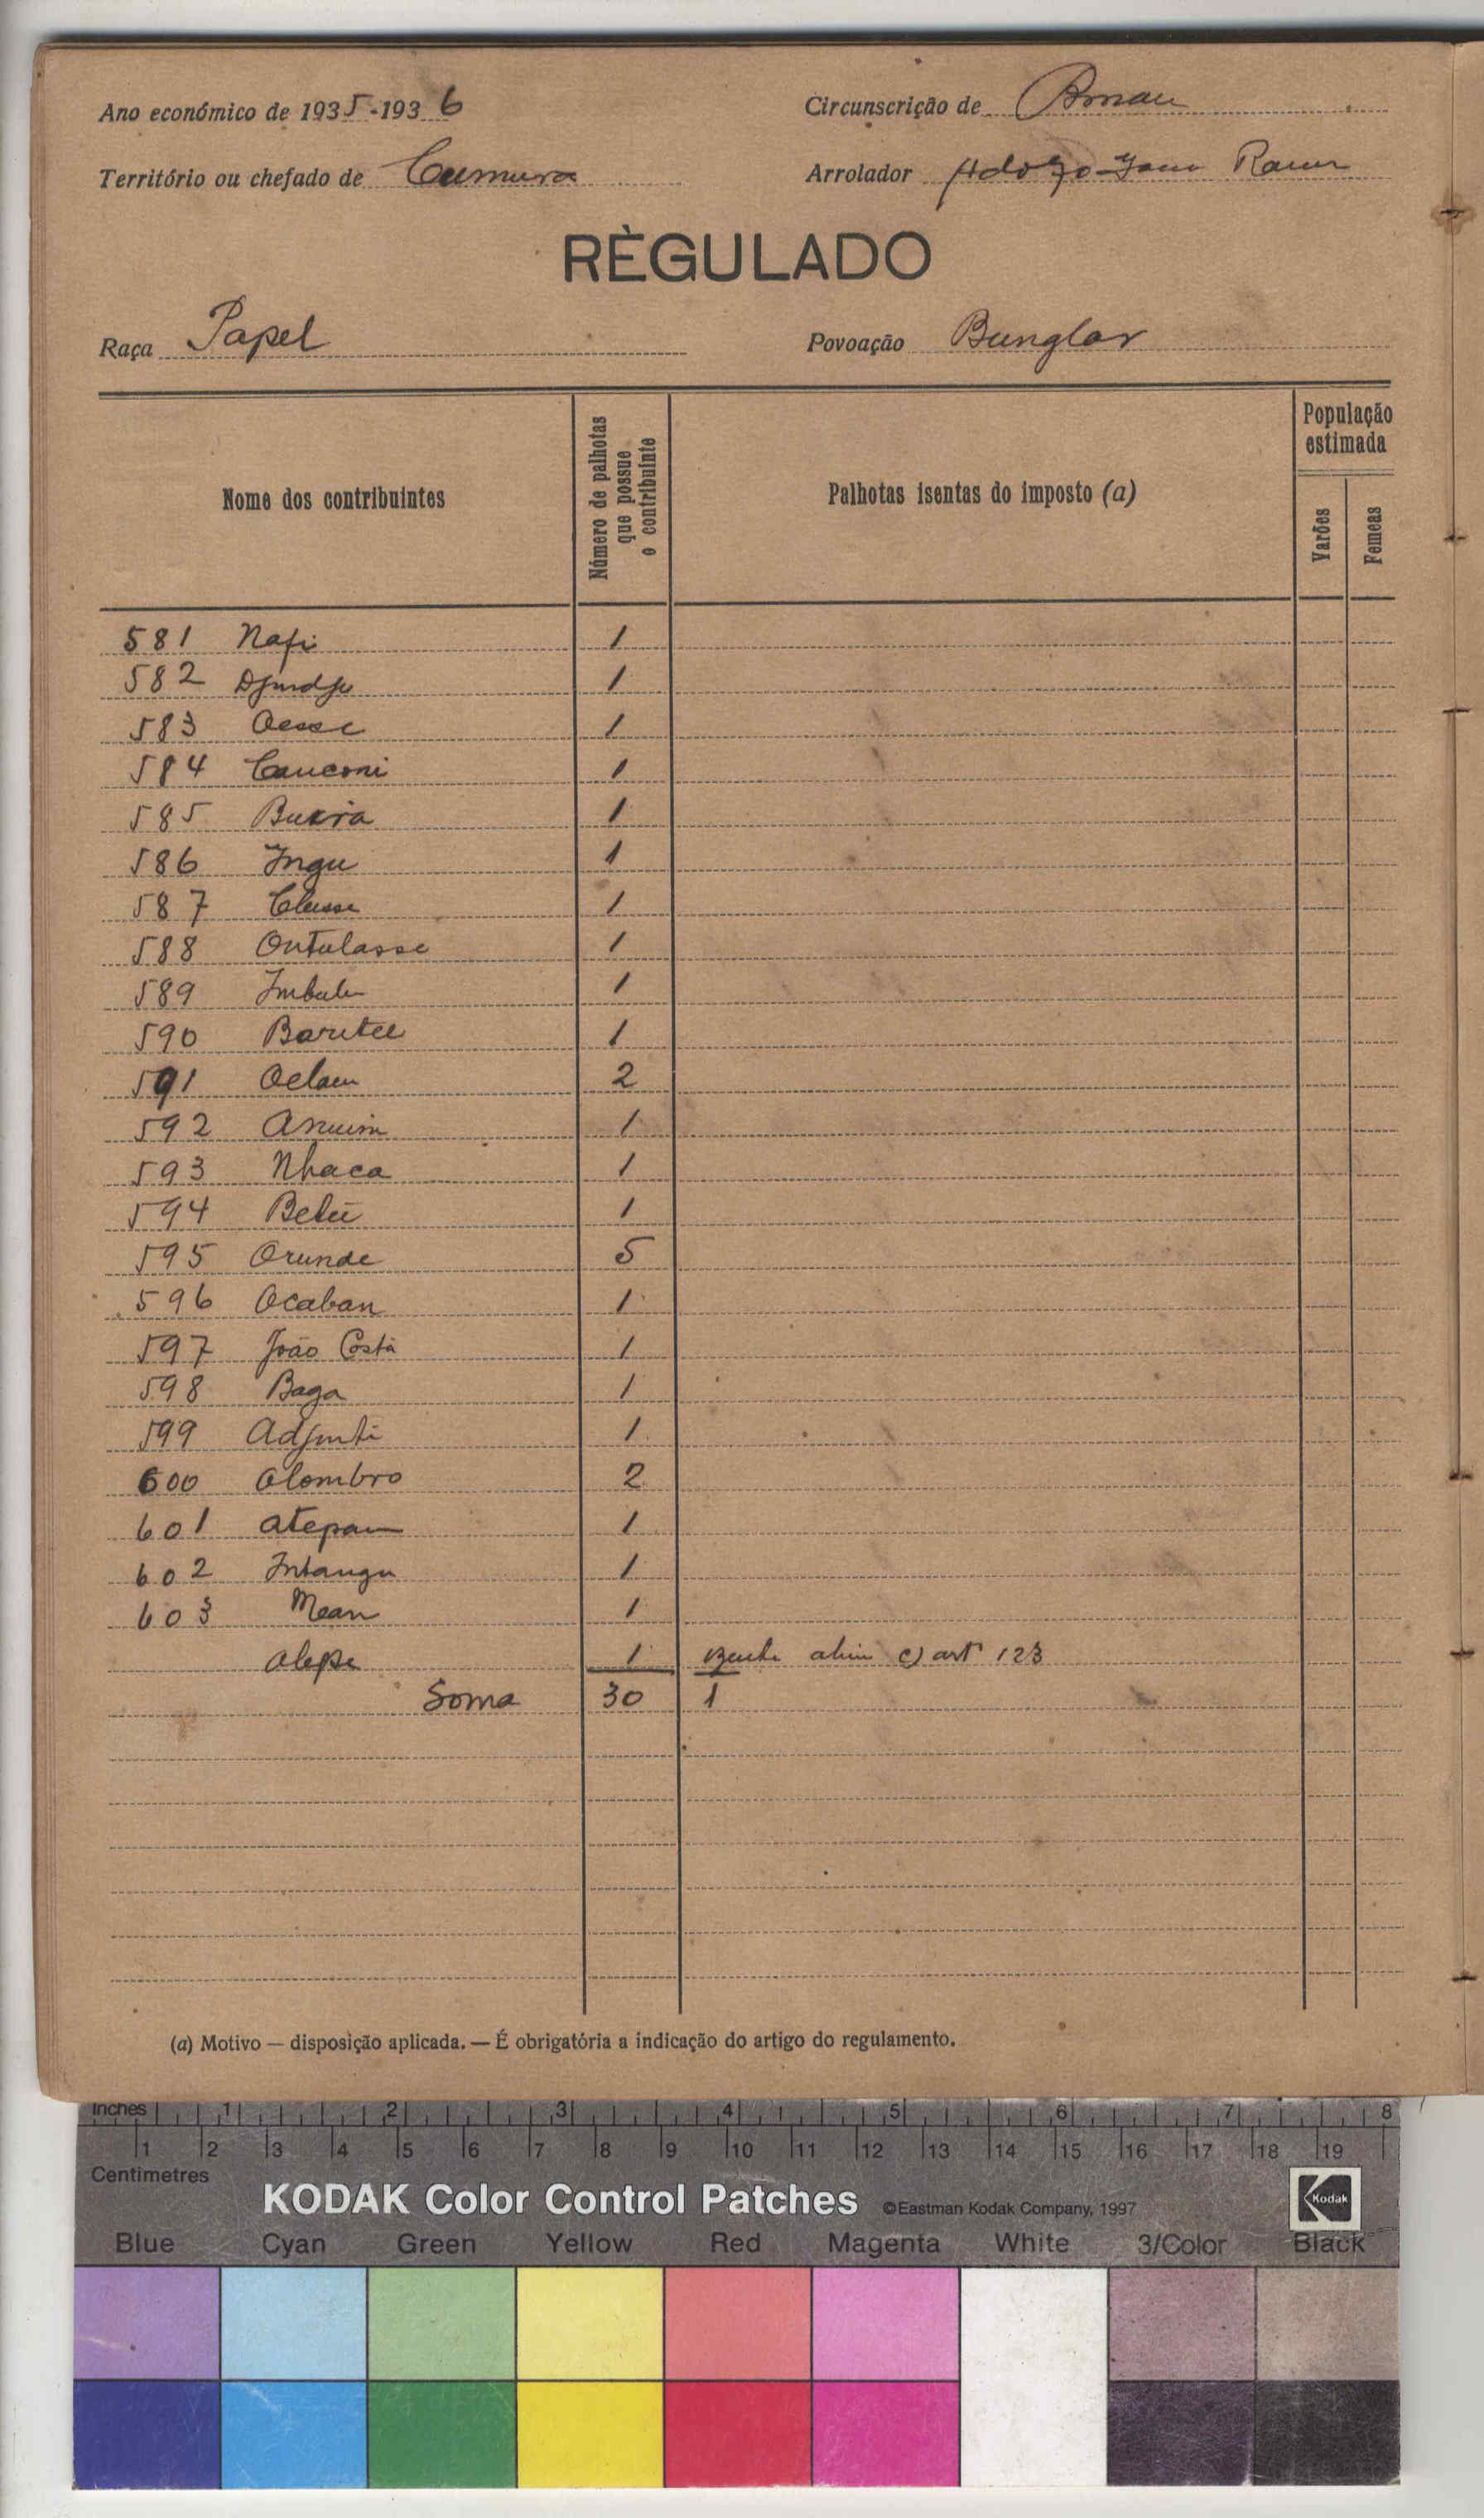 Ano económico de 1935-1936
Circunscrição de Bissau
Território ou chefado de Cumura
Arrolador Adolfo Ramos
RÈGULADO
Raça Papel
Povoação Bunglar
Nome dos contribuintes
Número de palhotas que possue o contribuinte
Palhotas isentas do imposto (a)
População estimada
Varões
Femeas
581 Nafi 1
582 1
583 Oesse 1
584 Cauconi 1
585 1
586 Ingu 1
587 Clusse 1
588 Ontulasse 1
589 1
590 1
591 2
592 1
593 Nhaca 1
594 1
595 Orunde 5
596 Ocaban 1
597 João Costa 1
598 Baga 1
599 1
600 Olombro 2
601 Atepam 1
602 Intangu 1
603 Mean 1
Olepe 1 alin c) art 123
Soma 30 1
(a) Motivo — disposição aplicada. — É obrigatória a indicação do artigo do regulamento.
Inches 1 2 3 4 5 6 7 8
1 2 3 4 5 6 7 8 9 10 11 12 13 14 15 16 17 18 19
Centimetres
KODAK Color Control Patches ©Eastman Kodak Company, 1997 Kodak
Blue Cyan Green Yellow Red Magenta White 3/Color Black